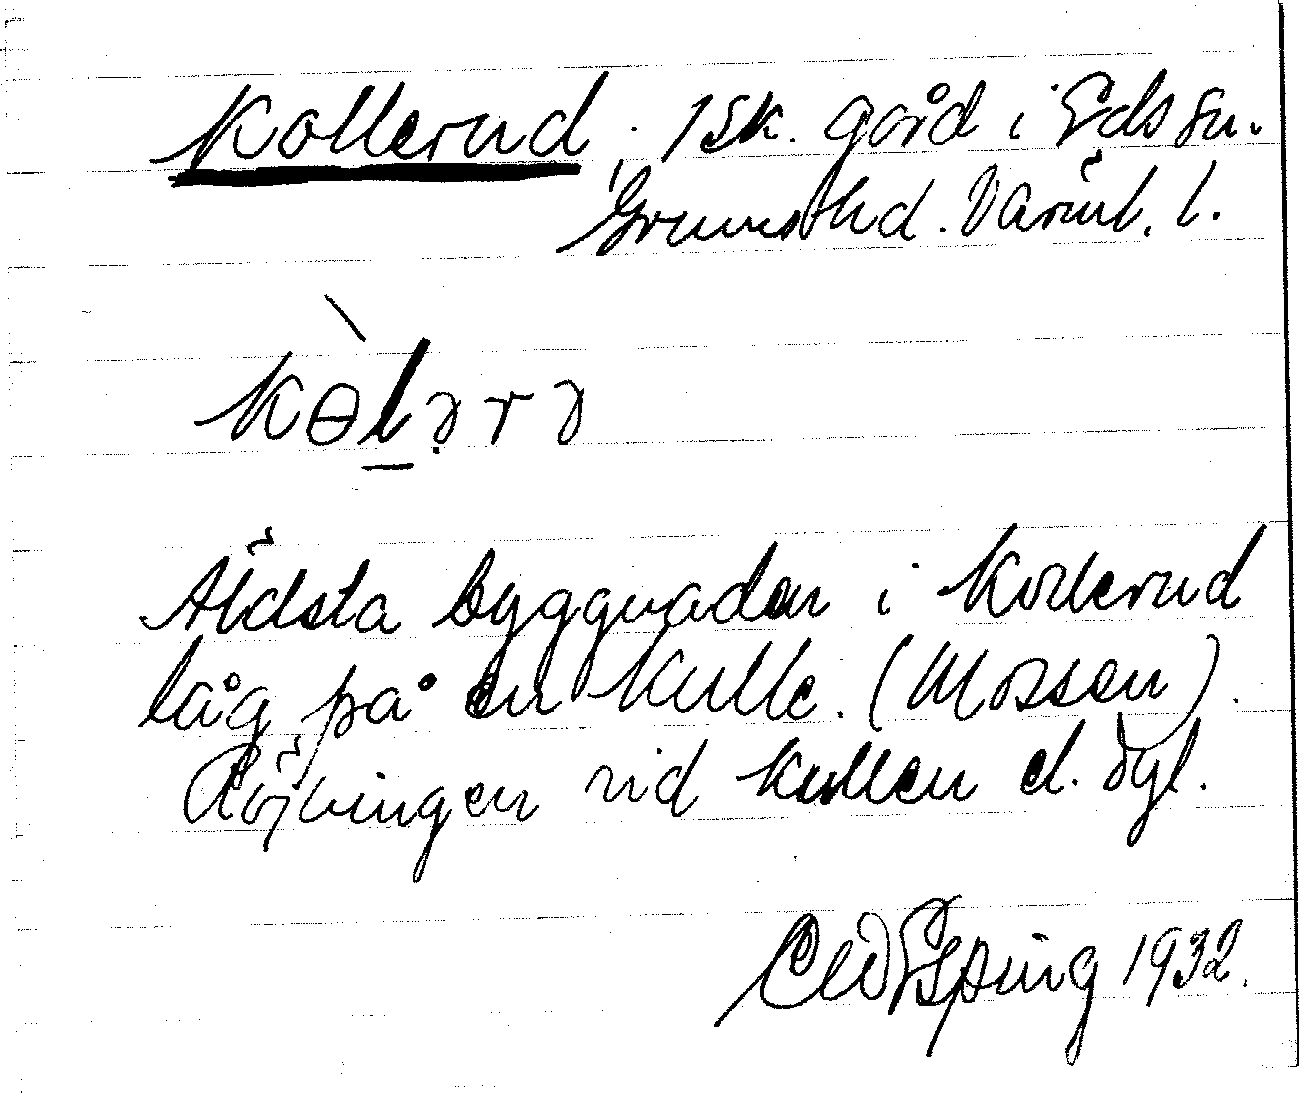 Kollerud. 1 sk. gård i Eds sn.
Grums hd. Värml. l.
Kɵlərə
Äldsta byggnaden i Kollerud
låg på en kulle. (Mossen).
Röjningen vid kullen el. dyl.
Esping 1932.